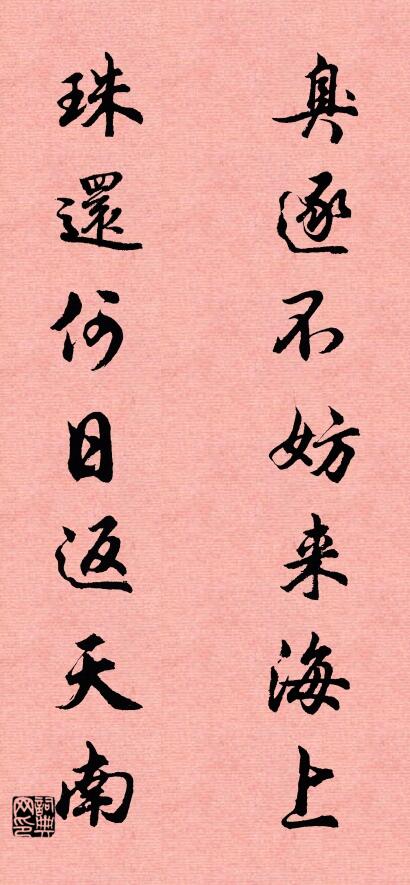 臭逐不妨来海上
珠還何日返天南
詞典网印